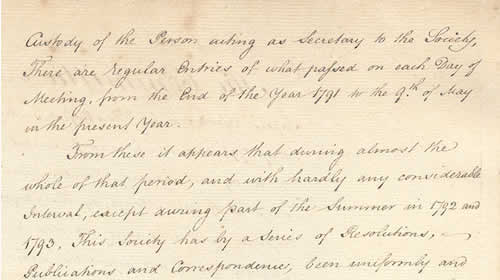 Custody of the Person acting as Secretary to the Society,
There are regular Entries of what passed on each Day of
Meeting, from the End of the Year 1791 to the 9.th of May
in the present Year.
From these it appears that during almost the
whole of that period, and with hardly any considerable
Interval, except during part of the Summer in 1792 and
1793, This Society has by a Series of Resolutions,
Publications and Correspondence, been uniformly and